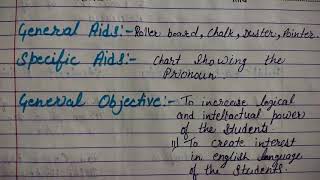 General Aids:- Roller board, Chalk, Duster, Pointer.
Specific Aids:- Chart Showing the
Pronoun
General Objective:- To increase logical
and intellectual power
of the Students
ii) To create interest
in english language
of the Students.